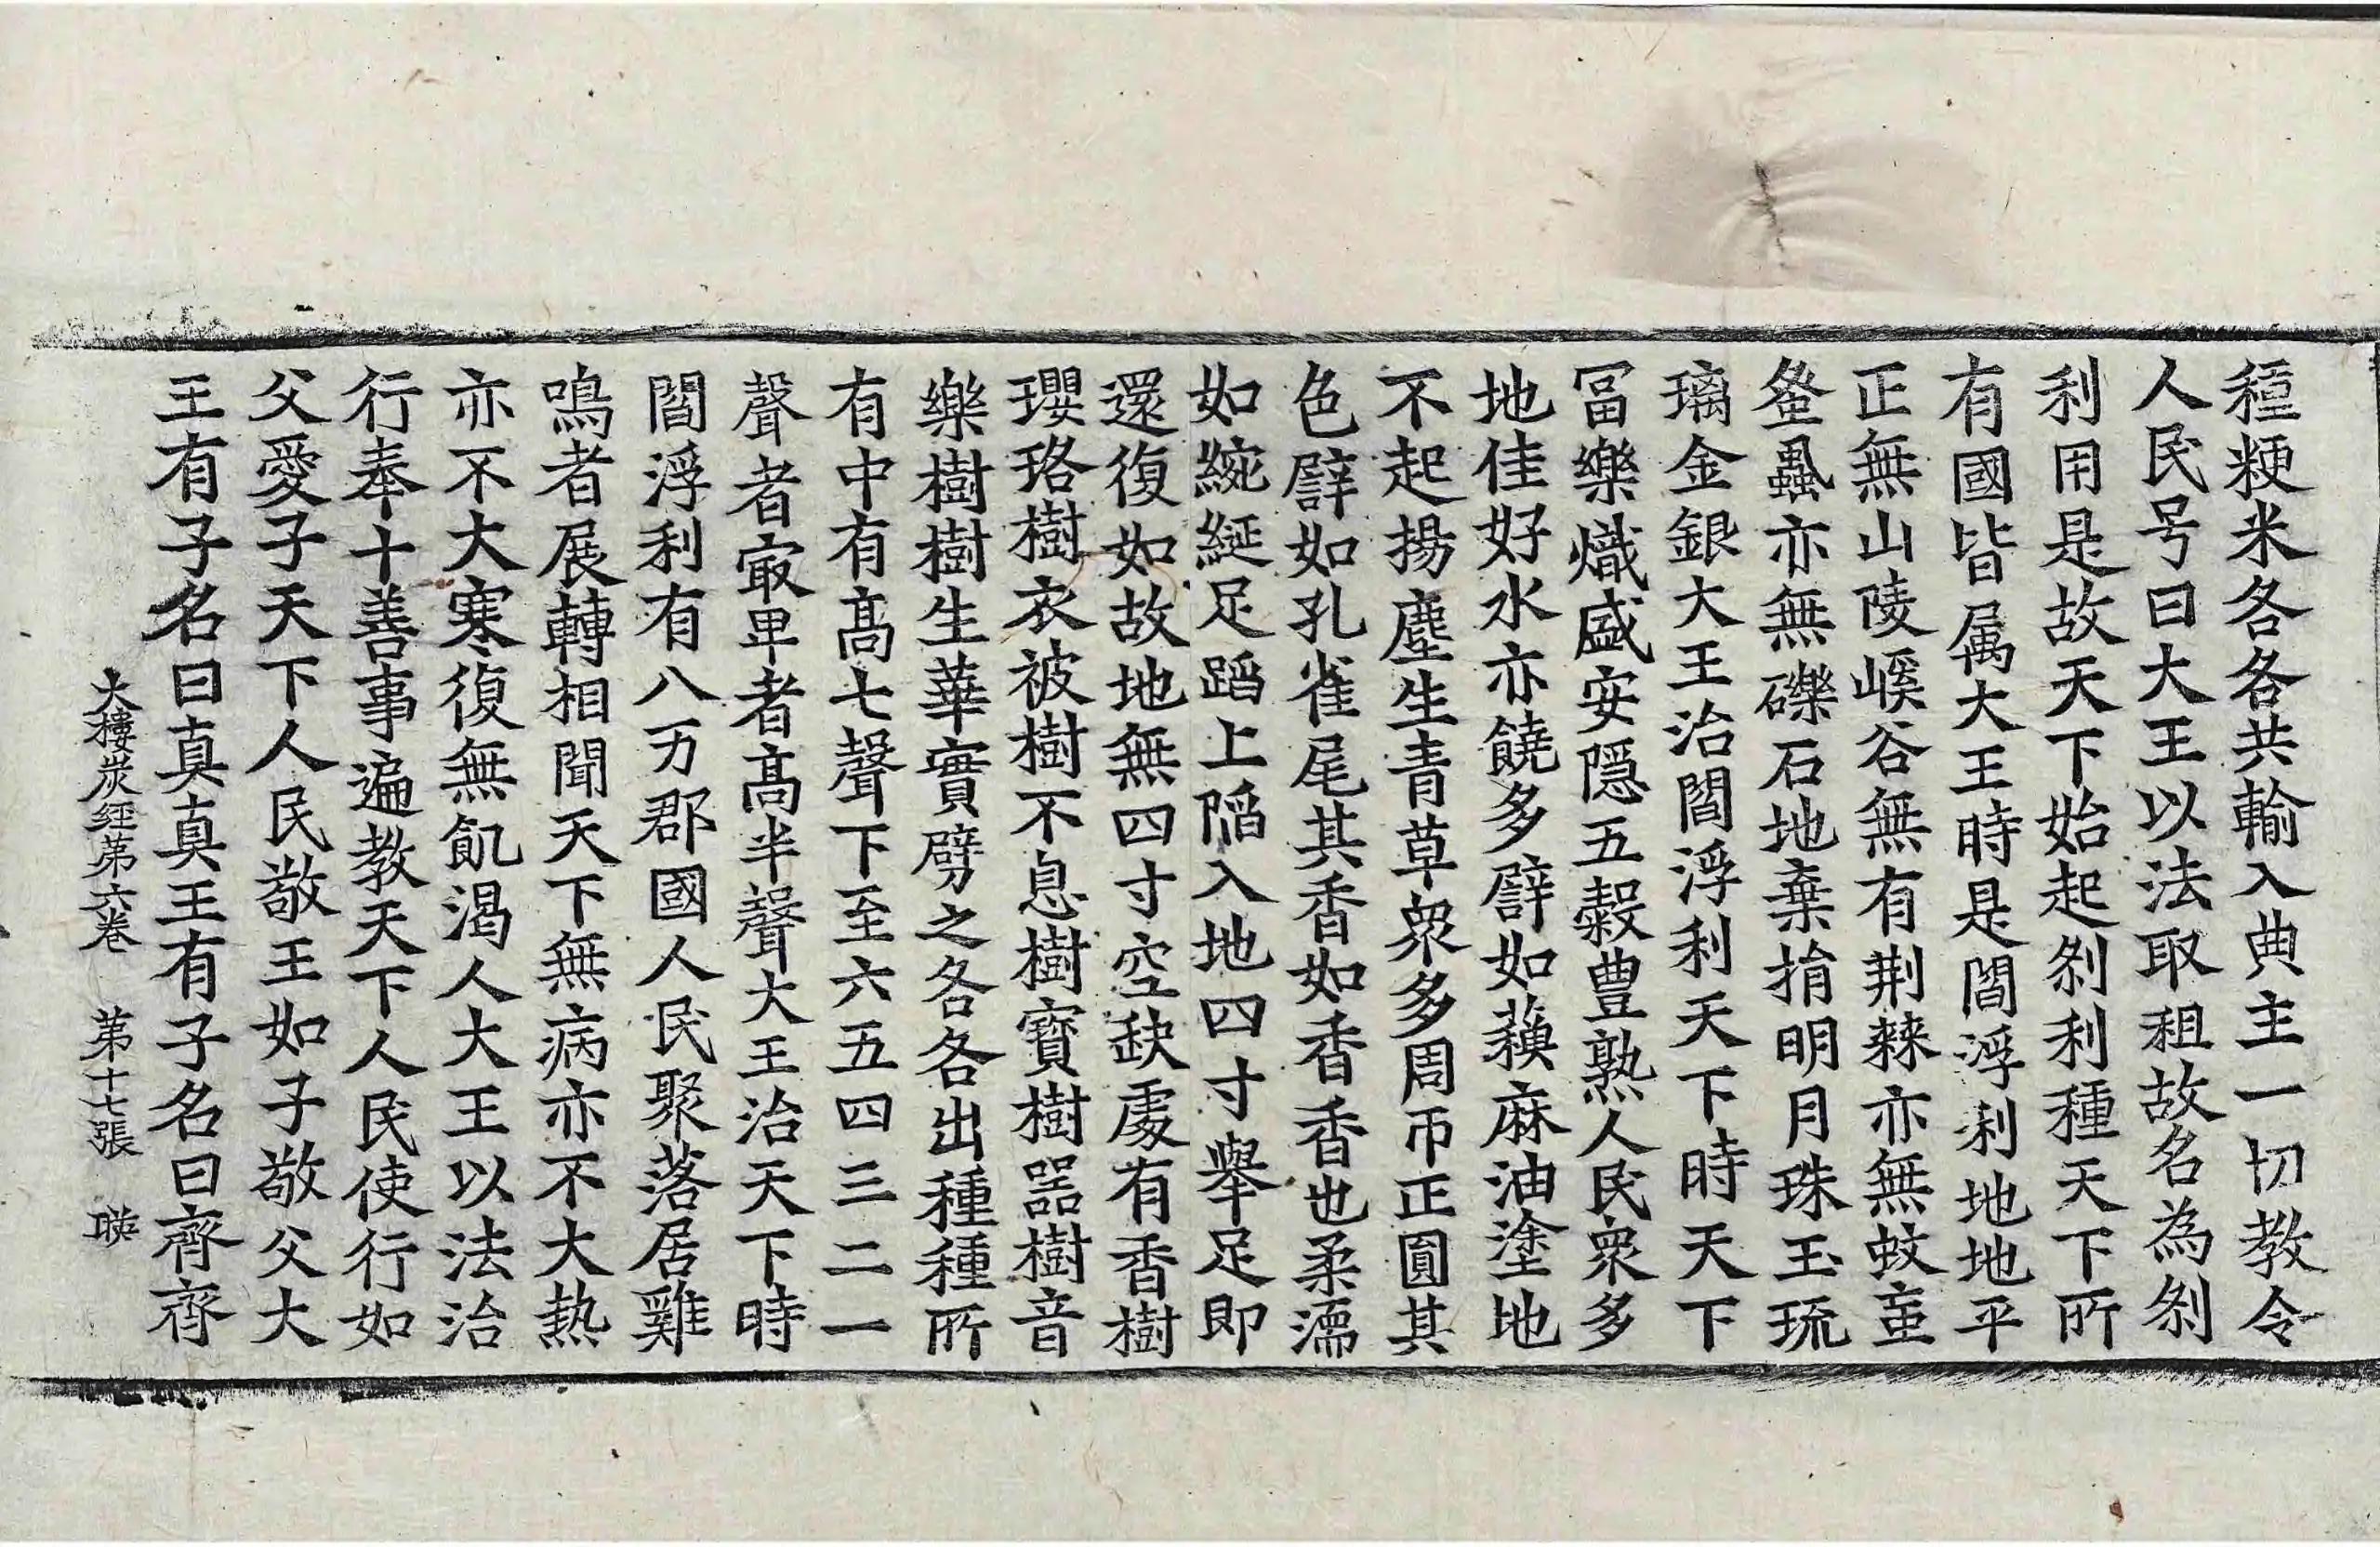 種粳米各各共輸入典主一切教令
人民号曰大王以法取租故名為刹
利用是故天下始起刹利種天下所
有國皆属大王時是閻浮利地地平
正無山陵嵠谷無有荆棘亦無蚊䖟
蚤蝨亦無礫石地棄捐明月珠玉琉
璃金銀大王治閻浮利天下時天下
冨樂熾盛安隠五榖豊熟人民衆多
地佳好水亦饒多譬如蘇麻油塗地
不起揚塵生青草衆多周帀正圓其
色譬如孔雀尾其香如香香也柔濡
如綩綖足蹈上陷入地四寸舉足即
還復如故地無四寸空缺處有香樹
瓔珞樹衣被樹不息樹寶樹器樹音
樂樹樹生華實劈之各各出種種所
有中有髙七聲下至六五四三二一
聲者㝡卑者髙半聲大王治天下時
閻浮利有八万郡國人民聚落居雞
鳴者展轉相聞天下無病亦不大熱
亦不大寒復無飢渴人大王以法治
行奉十善事遍教天下人民使行如
父愛子天下人民敬王如子敬父大
王有子名曰真真王有子名曰齊齊
大樓炭經第六卷 第十七張 㬌